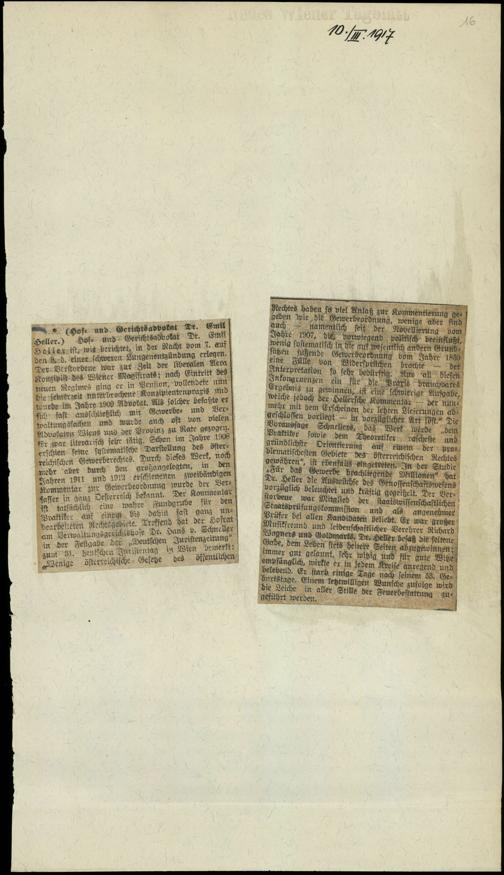 Neues Wiener Tagblatt
16
10./III. 1917
* (Hof- und Gerichtsadvokat Dr. Emil
Heller.) Hof- und Gerichtsadvokat Dr. Emil
Heller ist, wie berichtet, in der Nacht vom 7. auf
den 8. d. einer schweren Lungenentzündung erlegen.
Der Verstorbene war zur Zeit der liberalen Aera
Konzipist des Wiener Magistrats; nach Eintritt des
neuen Regimes ging er in Pension, vollendete nun
die seinerzeit unterbrochene Konzipientenpraxis und
wurde im Jahre 1909 Advokat. Als solcher befaßte er
sich fast ausschließlich mit Gewerbe- und Ver-
waltungssachen und wurde auch oft von vielen
Advokaten Wiens und der Provinz zu Rate gezogen.
Er war literarisch sehr tätig. Schon im Jahre 1908
erschien seine systematische Darstellung des öster-
reichischen Gewerberechtes. Durch dieses Werk, noch
mehr aber durch den großangelegten, in den
Jahren 1911 und 1912 erschienenen zweibändigen
Kommentar zur Gewerbeordnung wurde der Ver-
fasser in ganz Oesterreich bekannt. Der Kommentar
ist tatsächlich eine wahre Fundgrube für den
Praktiker auf einem bis dahin so ganz un-
bearbeiteten Rechtsgebiete. Treffend hat der Hofrat
am Verwaltungsgerichtshofe Dr. Hans v. Schneller
in der Festgabe der „Deutschen Juristenzeitung“
zum 31. Deutschen Juristentag in Wien bemerkt:
„Wenige österreichische Gesetze des öffentlichen
Rechtes haben so viel Anlaß zur Kommentierung ge-
geben wie die Gewerbeordnung, wenige aber sind
auch — namentlich seit der Novellierung vom
Jahre 1907, die, vorwiegend politisch beeinflußt,
wenig systematisch in die auf wesentlich andern Grund-
sätzen fußende Gewerbeordnung vom Jahre 1859
eine Fülle von Widersprüchen brachte — der
Interpretation so sehr bedürftig. Um all diesen
Inkongruenzen ein für die Praxis brauchbares
Ergebnis zu gewinnen, ist eine schwierige Aufgabe,
welche jedoch der Hellersche Kommentar — der nun-
mehr mit dem Erscheinen der letzten Lieferungen ab-
geschlossen vorliegt — in vorzüglicher Art löst.“ Die
Voraussage Schnellers, das Werk werde „dem
Praktiker sowie dem Theoretiker rascheste und
gründlichste Orientierung auf einem der pro-
blematischesten Gebiete des österreichischen Rechtes
gewähren“, ist ebenfalls eingetroffen. In der Studie
„Für das Gewerbe brachliegende Millionen“ hat
Dr. Heller die Auswüchse des Genossenschaftswesens
vorzüglich beleuchtet und kräftig gegeißelt. Der Ver-
storbene war Mitglied der staatswissenschaftlichen
Staatsprüfungskommission und als angenehmer
Prüfer bei allen Kandidaten beliebt. Er war großer
Musikfreund und leidenschaftlicher Verehrer Richard
Wagners und Goldmarks. Dr. Heller besaß die seltene
Gabe, dem Leben stets heitere Seiten abzugewinnen;
immer gut gelaunt, sehr witzig und für gute Witze
empfänglich, wirkte er in jedem Kreise anregend und
belebend. Er starb einige Tage nach seinem 53. Ge-
burtstage. Einem letztwilligen Wunsche zufolge wird
die Leiche in aller Stille der Feuerbestattung zu-
geführt werden.